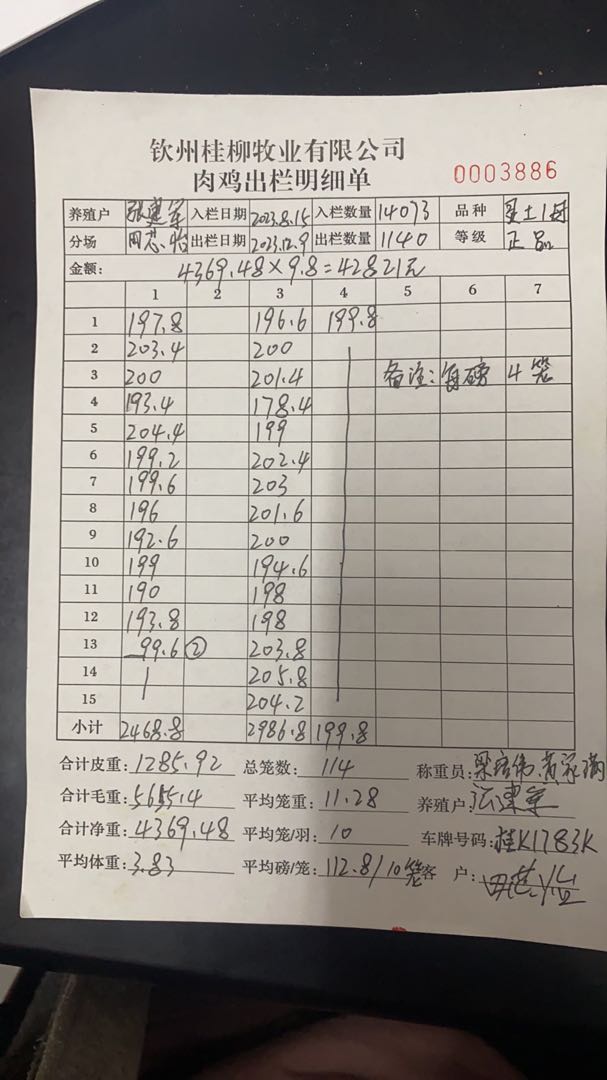 钦州桂柳牧业有限公司
肉鸡出栏明细单 0003886
养殖户 张建军 入栏日期 2023.8.15 入栏数量 14073 品种 土1
分场 出栏日期 2023.12.9 出栏数量 1140 等级 正品
金额: 4369.48×9.8=42821元
1 2 3 4 5 6 7
1 197.8 196.6 199.8
2 203.4 200
3 200 201.4 备注:每磅4笼
4 193.4 178.4
5 204.4 199
6 199.2 202.4
7 199.6 203
8 196 201.6
9 192.6 200
10 199 194.6
11 190 198
12 193.8 198
13 99.6 ② 203.8
14 205.8
15 204.2
小计 2468.8 2986.8 199.8
合计皮重: 1285.92 总笼数: 114 称重员:
合计毛重: 5655.4 平均笼重: 11.28 养殖户: 张建军
合计净重: 4369.48 平均笼/羽: 10 车牌号码: 桂K1783K
平均体重: 3.83 平均磅/笼: 112.8/10笼 客户: